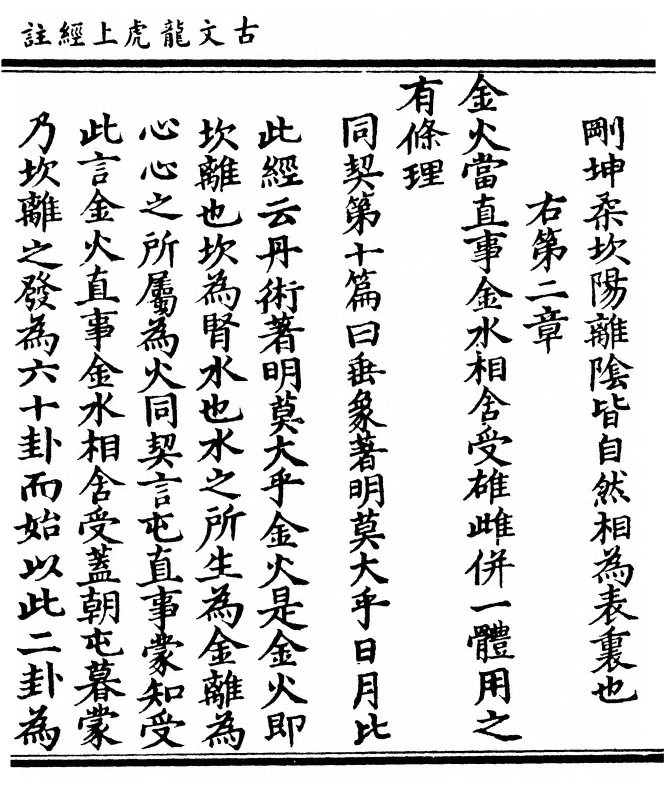 古文龍虎上經註
剛坤柔坎陽離陰皆自然相為表裏也
右第二章
金火當直事金水相舍受雄雌併一體用之
有條理
同契第十篇曰垂象著明莫大乎日月比
此經云丹術著明莫大乎金火是金火即
坎離也坎為腎水也水之所生為金離為
心心之所屬為火同契言屯直事蒙知受
此言金火直事金水相舍受蓋朝屯暮蒙
乃坎離之發為六十卦而始以此二卦為